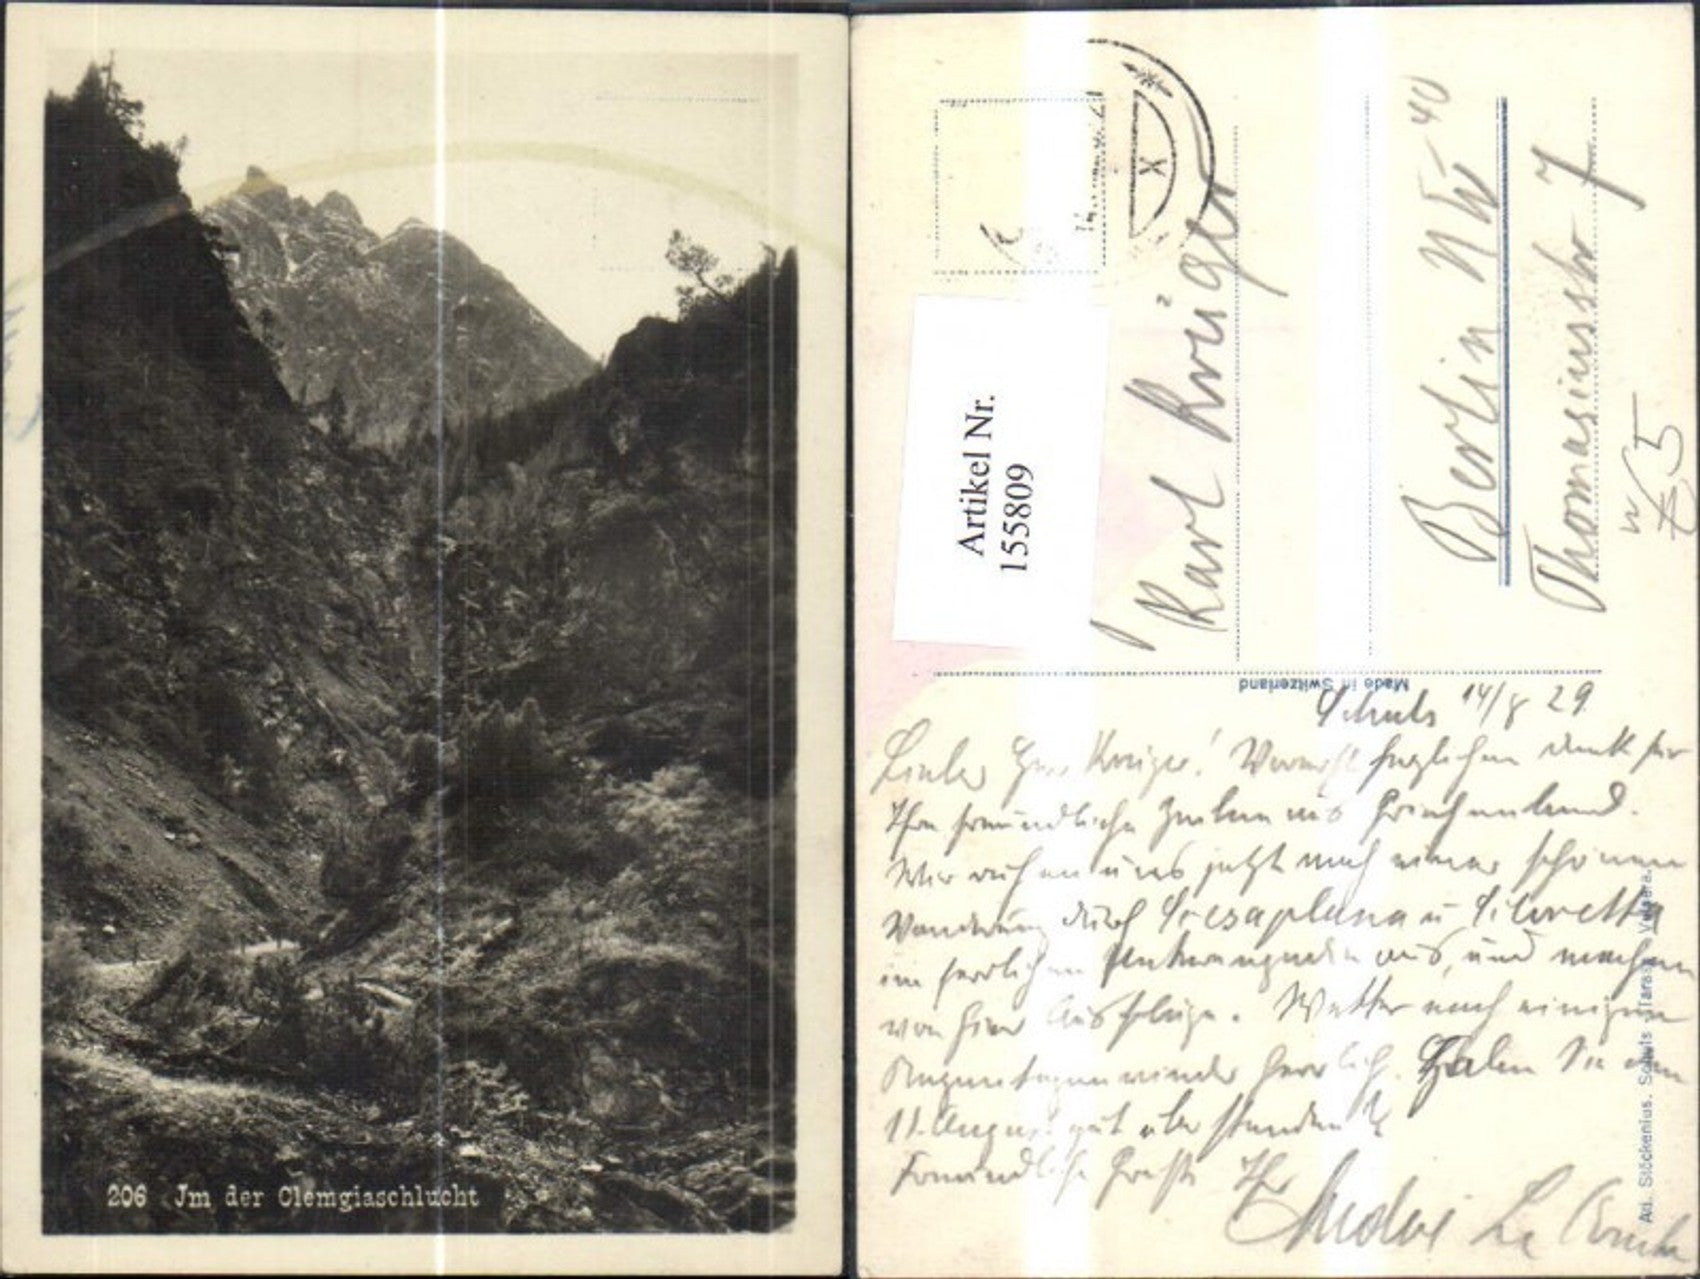 206 Jm der Clemgiaschlucht
Artikel Nr.
155809
X
Karl Krüger
Berlin NW 40
Thomasiusstr 7
Made in Switzerland
Schuls 14/8 29
Lieber Herr Krüger! herzlichen Dank für
Ihre freundliche Zeilen aus Griechenland.
Wir ruhen uns jetzt nach einer schönen
Wanderung durch Scesaplana u Silvretta
im herrlichen aus, und machen
von hier Ausflüge. Wetter nach einigen
Regentagen wieder herrlich. Haben Sie den
11. August gut überstanden?
Freundliche Grüsse Ihr
Ad. Stöckenius. Schuls Tarasp Vulpera.